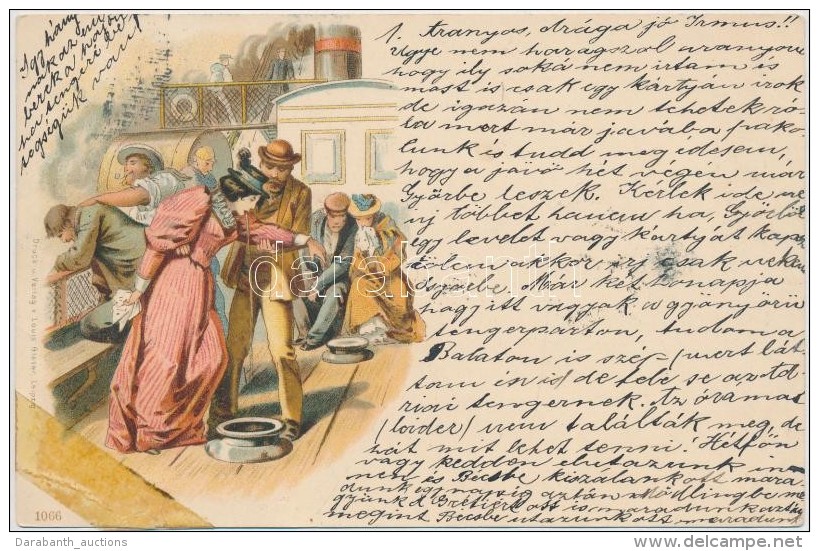 1. Aranyos, drága jó Irmus!!
Ugye nem haragszol aranyom
hogy ily soká nem irtam és
most is csak egy kártyán irok
de igazán nem tehetek ró-
la mert már javába pako-
lunk is tudd meg édesem,
hogy a jövő hét végén már
Győrbe leszek. Kérlek ide ne
irj többet hanem ha Győrből
egy levelet vagy kártyát kap
tőlem akkor irj csak
Győrbe. Már két hónapja
hogy itt vagyok a gyönyörű
tengerparton, tudom a
Balaton is szép (mert lát-
tam én is) de fele se az Ad-
riai tengernek. Az óramat
(loider) nem találták meg, de
hát mit lehet tenni! Hétfőn
vagy kedden elutazunk in-
nen és Bécsbe kiszalánk ott mara
dunk egy napig aztán Mödlingbe me
gyünk ott is maradunk
megint Bécsbe utazunk ott maradunk
Igy hány
nekik
van
Druck u. Verlag v. Louis Glaser, Leipzig
1066
darabanth
Darabanth_auctions
www.delcampe.net